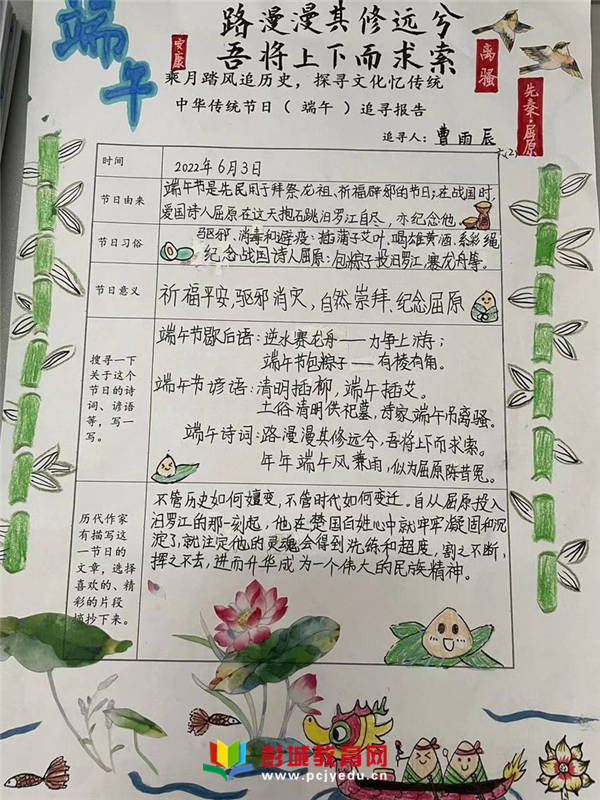 端午
路漫漫其修远兮
吾将上下而求索
安康
离骚
先秦·屈原
乘月踏风追历史，探寻文化忆传统
中华传统节日（ 端午 ）追寻报告
追寻人：曹雨辰
六(2)
时间
2022年6月3日
节日由来
端午节是先民用于拜祭龙祖、祈福辟邪的节日；在战国时，
爱国诗人屈原在这天抱石跳汨罗江自尽，亦纪念他。
节日习俗
驱邪、消毒和避疫：插蒲子艾叶、喝雄黄酒、系彩绳
纪念战国诗人屈原：包粽子投汨罗江、赛龙舟等。
节日意义
祈福平安，驱邪消灾，自然崇拜、纪念屈原
搜寻一下
关于这个
节日的诗
词、谚语
等，写一
写。
端午节歇后语：逆水赛龙舟——力争上游；
端午节包粽子——有棱有角。
端午节谚语：清明插柳，端午插艾。
土俗清明供祀墓，诗家端午吊离骚。
端午诗词：路漫漫其修远兮，吾将上下而求索。
年年端午风兼雨，似为屈原陈昔冤。
历代作家
有描写这
一节日的
文章，选择
喜欢的、精
彩的片段
摘抄下来。
不管历史如何嬗变，不管时代如何变迁。自从屈原投入
汨罗江的那一刻起，他在楚国百姓心中就牢牢凝固和沉
淀了，就注定他的灵魂会得到洗练和超度，割之不断，
挥之不去，进而升华成为一个伟大的民族精神。
彭城教育网
www.pcjyedu.cn